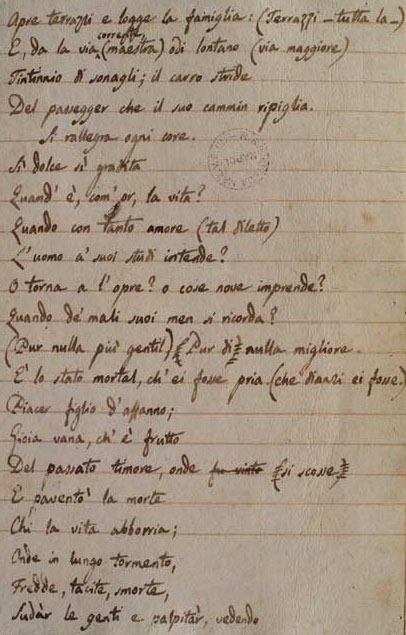 Apre terrazzi e logge la famiglia: (Terrazzi – tutta la –)
corrente
E, da la via (maestra) odi lontano (via maggiore)
Tintinnio di sonagli; il carro stride
Del passegger che il suo cammin ripiglia.
Si rallegra ogni core.
Sì dolce sì gradita
Quand' è, com' or, la vita?
Quando con tanto amore (tal diletto)
L'uomo a' suoi studi intende?
O torna a l'opre? o cose nove imprende?
Quando de' mali suoi men si ricorda?
(Pur nulla più gentil) (Pur di) nulla migliore.
E' lo stato mortal, ch' ei fosse pria. (che dianzi ei fosse.)
Piacer figlio d'affanno;
Gioia vana, ch' è frutto
Del passato timore, onde fu vinto (si scosse)
E paventò la morte
Chi la vita abborria;
Onde in lungo tormento,
Fredde, tacite, smorte,
Sudàr le genti e palpitàr, vedendo